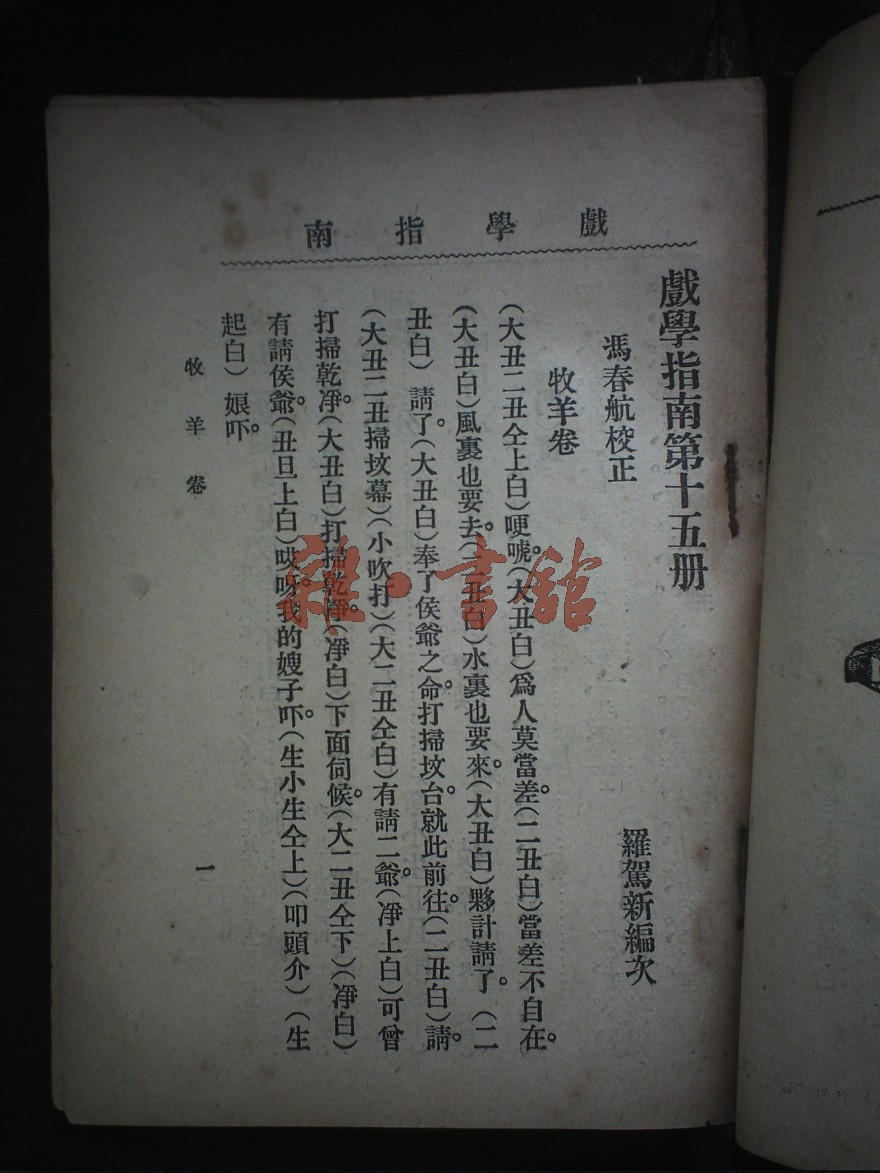 戲學指南
戲學指南第十五册
馮春航校正
羅駕新編次
牧羊卷
(大丑二丑仝上白)哽唬。(大丑白)爲人莫當差。(二丑白)當差不自在。
(大丑白)風裏也要去。(二丑白)水裏也要來。(大丑白)夥計請了。(二
丑白)請了。(大丑白)奉了侯爺之命。打掃坟台。就此前往。(二丑白)請。
(大丑二丑掃坟幕)(小吹打)(大二丑仝白)有請二爺。(凈上白)可曾
打掃乾凈。(大丑白)打掃乾凈。(凈白)下面伺候。(大二丑仝下)(凈白)
有請侯爺。(丑旦上白)哎呀。我的嫂子吓。(生小生仝上)(叩頭介)(生
起白)娘吓。
牧羊卷
一
雜·書舘